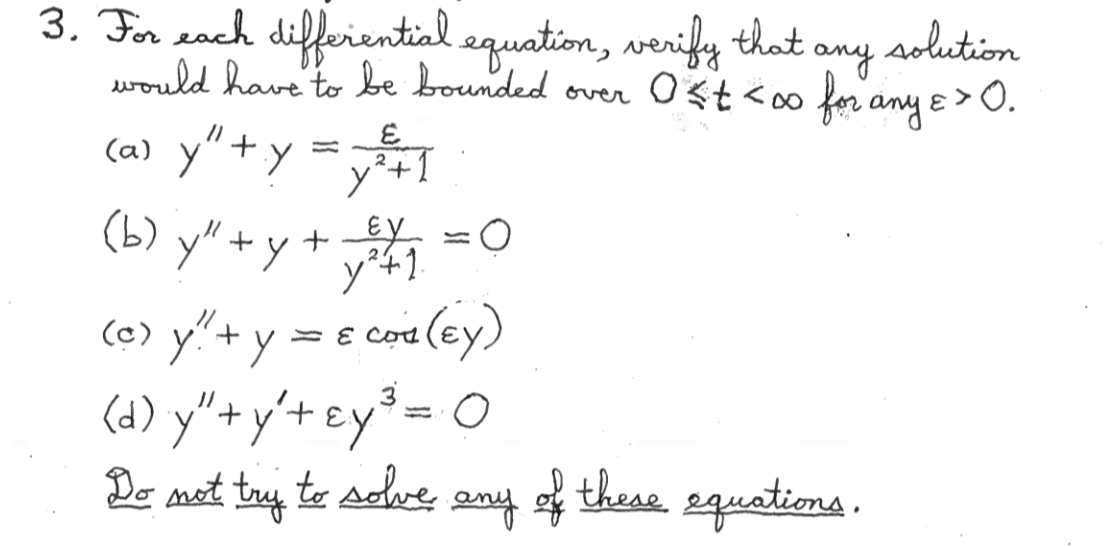 3. For each differential equation, verify that any solution
would have to be bounded over 0 ≤ t < ∞ for any ε > 0.
(a) y'' + y = ε / (y² + 1)
(b) y'' + y + εy / (y² + 1) = 0
(c) y'' + y = ε cos(εy)
(d) y'' + y' + εy³ = 0
Do not try to solve any of these equations.